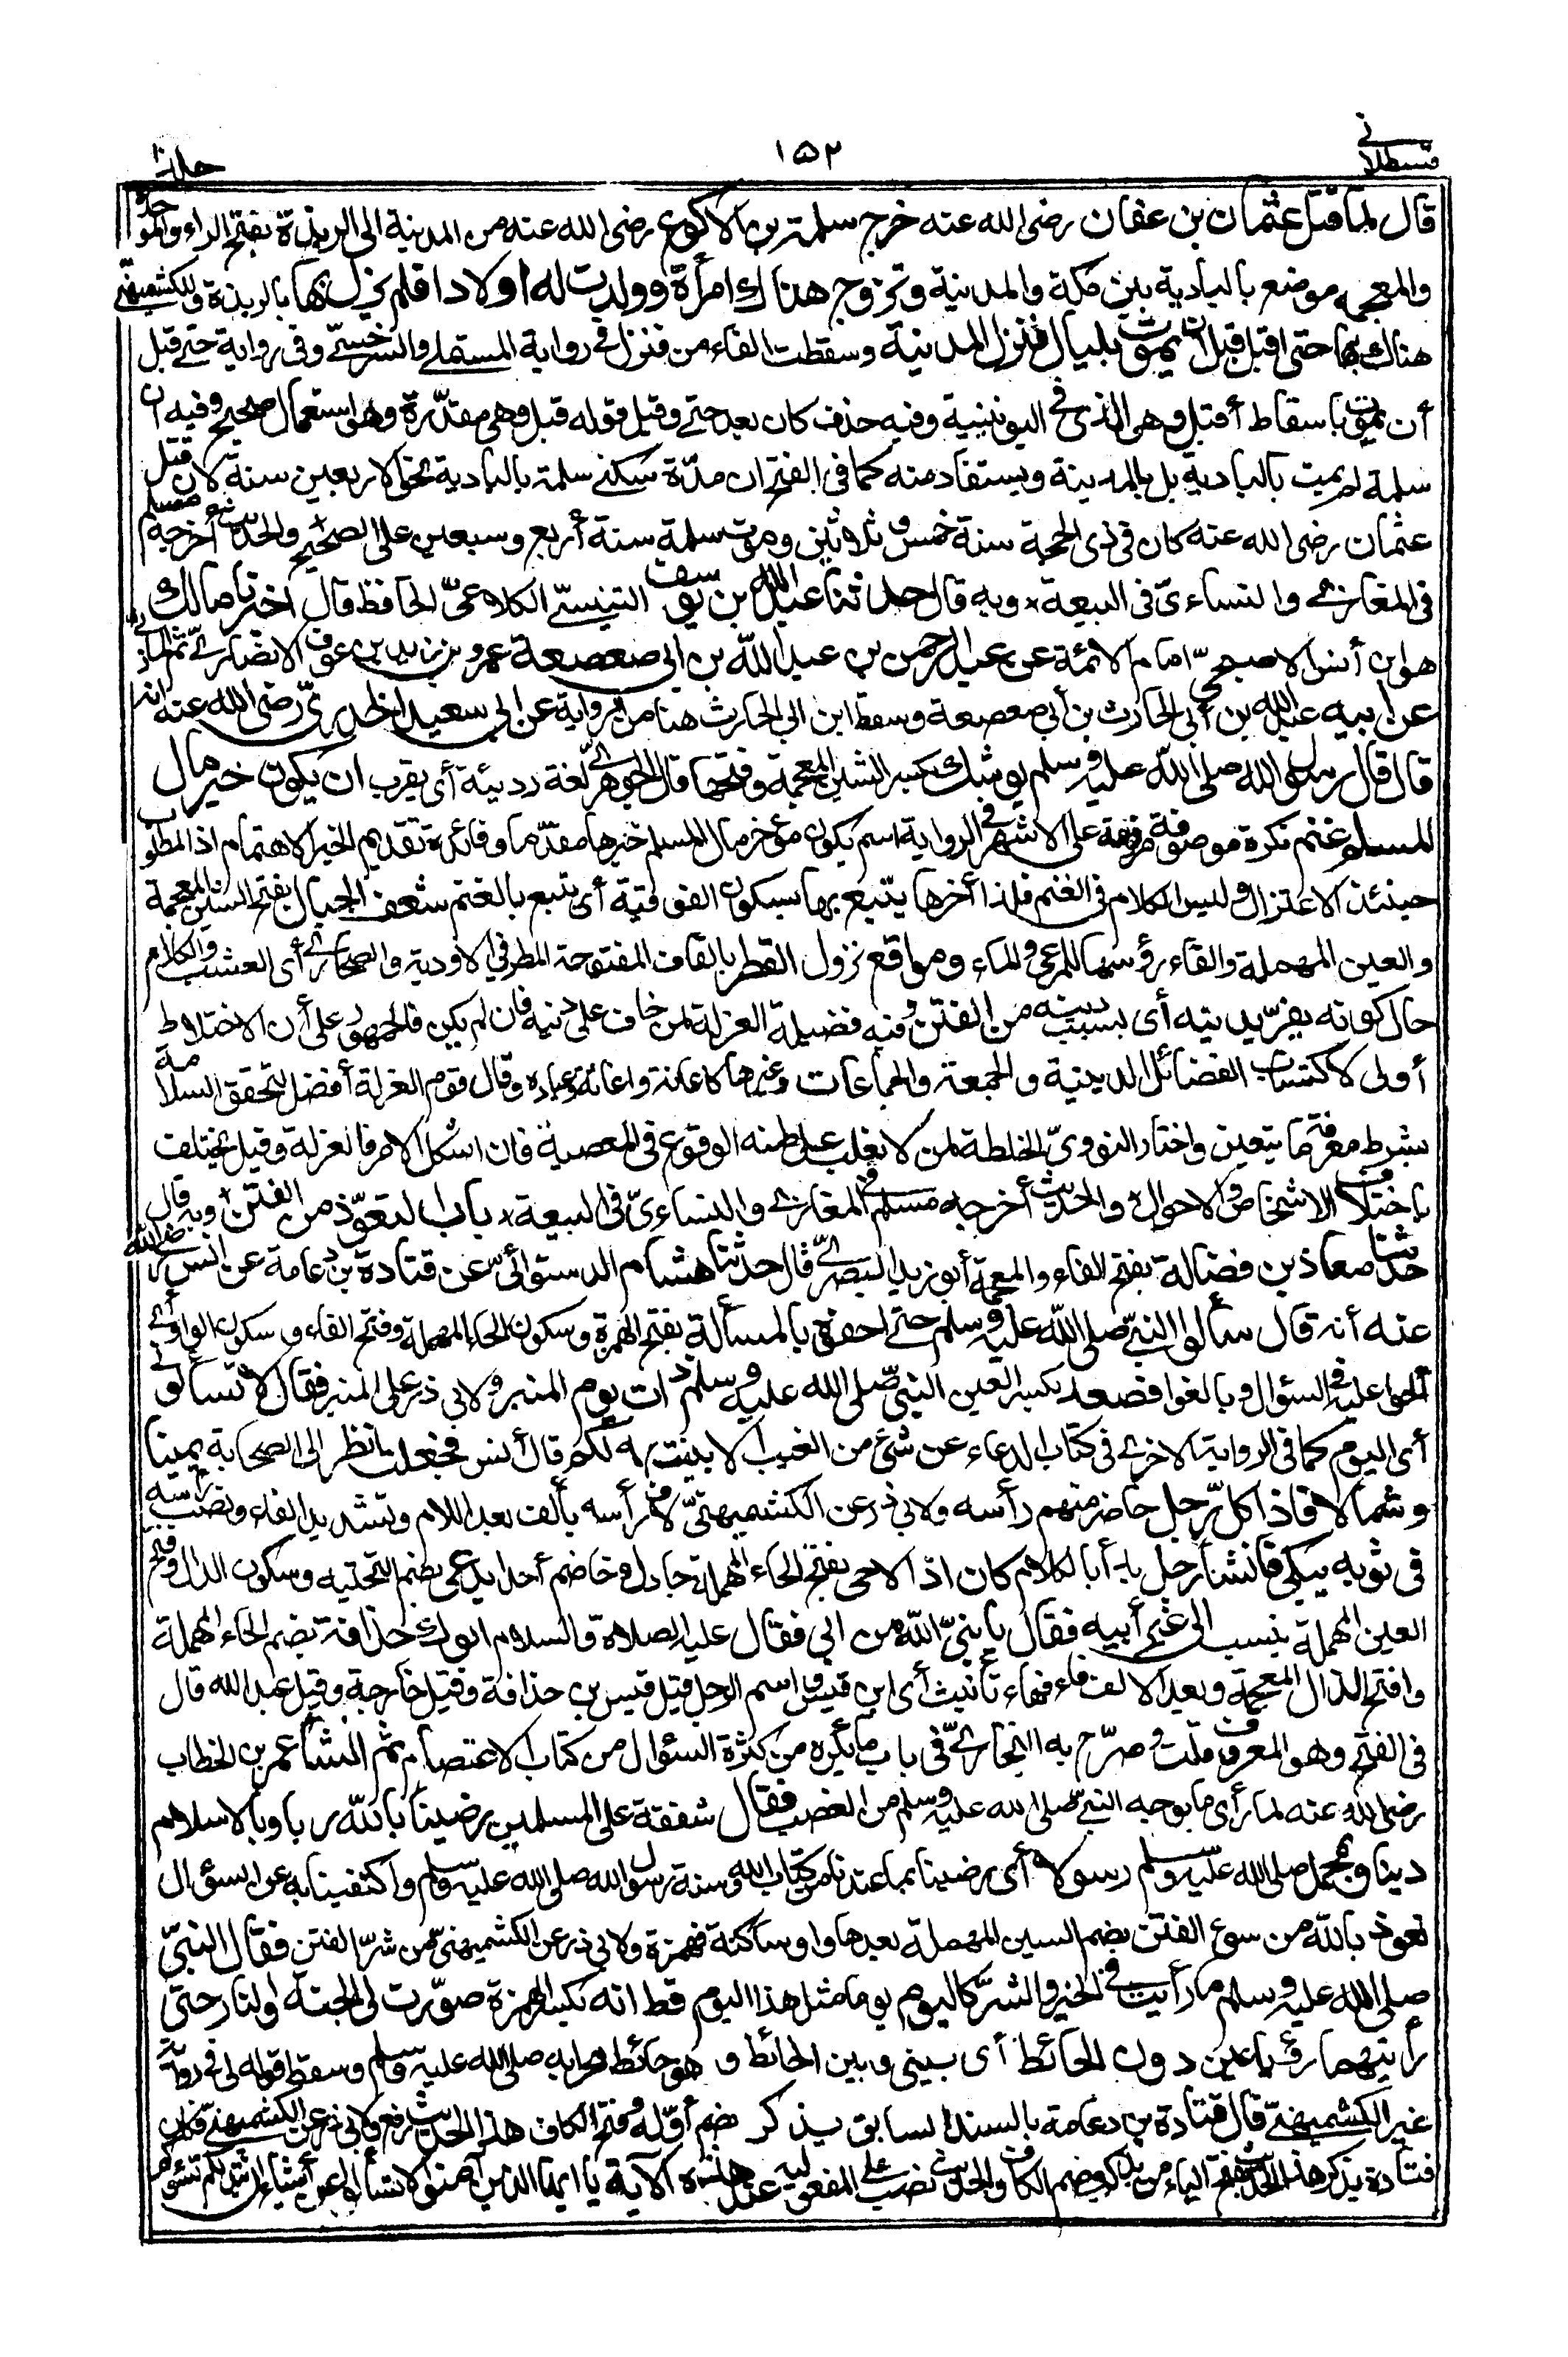 قسطلانی
١٥٢
جلد١٠
قال لما قتل عثمان بن عفان رضى الله عنه خرج سلمة بن الاكوع رضى الله عنه من المدينة الى الربذة بفتح الراء والموحدة
والمعجمة موضع بالبادية بين مكة والمدينة وتزوج هناك امرأة وولدت له اولادا فلم يزل بها بالربذة وللكشميهنى
هناك بها حتى اقبل قبل ان يموت بليال فنزل المدينة وسقطت الفاء من فنزل فى رواية المستملى والسرخسى وفى رواية حتى قبل
أن يموت باسقاط أقبل وهى الذى فى اليونينية وفيه حذف كان بعد حتى وقبل قوله قبل وهى مقدرة وهو استعمال صحيح وفيه ان
سلمة لم يمت بالبادية بل بالمدينة ويستفاد منه كما فى الفتح ان مدّة سكنى سلمة بالبادية نحو الاربعين سنة لان قتل
عثمان رضى الله عنه كان فى ذى الحجة سنة خمس وثلاثين وموت سلمة سنة أربع وسبعين على الصحيح * والحديث أخرجه مسلم
فى المغازى والنساءىّ فى البيعة * وبه قال حدثنا عبد الله بن يوسف التنيسىّ الكلاعىّ الحافظ قال اخبرنا مالك
هو ابن أنس الاصبحىّ امام الائمة عن عبد الرحمن بن عبد الله بن ابى صعصعة عمرو بن زيد بن عوف الانصارىّ ثم المازنى
عن ابيه عبد الله بن أبى الحارث بن أبى صعصعة وسقط ابن ابى الحارث هنا من الرواية عن ابى سعيد الخدرىّ رضى الله عنه انه
قال قال رسول الله صلى الله عليه وسلم يوشك بكسر الشين المعجمة وفتحها قال الجوهرىّ لغة رديئة أى يقرب ان يكون خير مال
المسلم غنم نكرة موصوفة مرفوعة على الاشهر فى الرواية اسم يكون مؤخر مال المسلم خبرها مقدّما وفائدة تقديم الخبر الاهتمام اذ المطلوب
حينئذ الاعتزال وليس الكلام فى الغنم فلذا أخرها يتبع بها بسكون الفوقية أى يتبع بالغنم شعف الجبال بفتح الشين المعجمة
والعين المهملة والفاء رؤسها للمرعى والماء ومواقع نزول القطر بالقاف المفتوحة المطر فى الاودية والصحارى أى العشب والكلام
حال كونه يفرّ بدينه أى بسبب دينه من الفتن وفيه فضيلة العزلة لمن خاف على دينه فان لم يكن فالجمهور على أن الاختلاط
أولى لاكتساب الفضائل الدينية والجمعة والجماعات وغيرها كاعانة واغاثة وعيادة وقال قوم العزلة أفضل لتحقق السلامة
بشرط معرفة ما يتعين واختار النووىّ الخلطة لمن لا يغلب على ظنه الوقوع فى المعصية فان اشكل الامر فالعزلة وقيل يختلف
باختلاف الاشخاص والاحوال * والحديث أخرجه مسلم فى المغازى والنساءىّ فى البيعة * باب التعوّذ من الفتن * وبه قال
حدثنا معاذ بن فضالة بفتح الفاء والمعجمة أبو زيد البصرىّ قال حدثنا هشام الدستوائىّ عن قتادة بن دعامة عن انس رضى الله
عنه أنه قال سألوا النبىّ صلى الله عليه وسلم حتى احفوه بالمسألة بفتح الهمزة وسكون الحاء المهملة وفتح الفاء وسكون الواو أى
ألحوا عليه فى السؤال وبالغوا فصعد بكسر العين النبىّ صلى الله عليه وسلم ذات يوم المنبر ولابى ذر على المنبر فقال لا تسألونى
أى اليوم كما فى الرواية الاخرى فى كتاب الدعاء عن شئ من الغيب الا بينته لكم قال أنس فجعلت انظر الى الصحابة يمينا
وشمالا فاذا كل رجل حاضر منهم رأسه ولابى ذر عن الكشميهنىّ لافّ رأسه بألف بعد اللام وتشديد الفاء ونصب رأسه
فى ثوبه يبكى فانشأ رجل بدأ بالكلام كان اذا لاحى بفتح الحاء المهملة جادل وخاصم أحدا يدعى بضم التحتية وسكون الدال وفتح
العين المهملة ينسب الى غير أبيه فقال يا نبىّ الله من ابى فقال عليه الصلاة والسلام ابوك حذافة بضم الحاء المهملة
وافتح الذال المعجمة وبعد الالف فاء فهاء تأنيث أى ابن قيس واسم الرجل قيل قيس بن حذافة وقيل خارجة وقيل عبد الله قال
فى الفتح وهو المعروف قلت وصرّح به البخارىّ فى باب ما يكره من كثرة السؤال من كتاب الاعتصام ثم انشأ عمر بن الخطاب
رضى الله عنه لما رأى ما بوجه النبىّ صلى الله عليه وسلم من الغضب فقال شفقة على المسلمين رضينا بالله ربا وبالاسلام
دينا وبمحمد صلى الله عليه وسلم رسولا أى رضينا بما عندنا من كتاب الله وسنة رسول الله صلى الله عليه وسلم واكتفينا به عن السؤال
نعوذ بالله من سوء الفتن بضم السين المهملة بعدها واو ساكنة فهمزة ولابى ذر عن الكشميهنىّ من شرّ الفتن فقال النبىّ
صلى الله عليه وسلم ما رأيت فى الخير والشرّ كاليوم يوما مثل هذا اليوم قط انه بكسر الهمزة صوّرت لى الجنة والنار حتى
رأيتهما رؤيا عين دون الحائط أى بينى وبين الحائط وهو حائط محرابه صلى الله عليه وسلم وسقط قوله لى فى رواية
غير الكشميهنىّ قال قتادة بن دعامة بالسند السابق يذكر بضم أوّله وفتح الكاف هذا الحديث رفع ولابى ذر عن الكشميهنىّ فكان
قتادة يذكر هذا الحديث بفتح الياء من يذكر وضم الكاف والحديث نصب على المفعولية عند هذه الآية يا ايها الذين آمنوا لا تسألوا عن أشياء ان تبد لكم تسؤكم